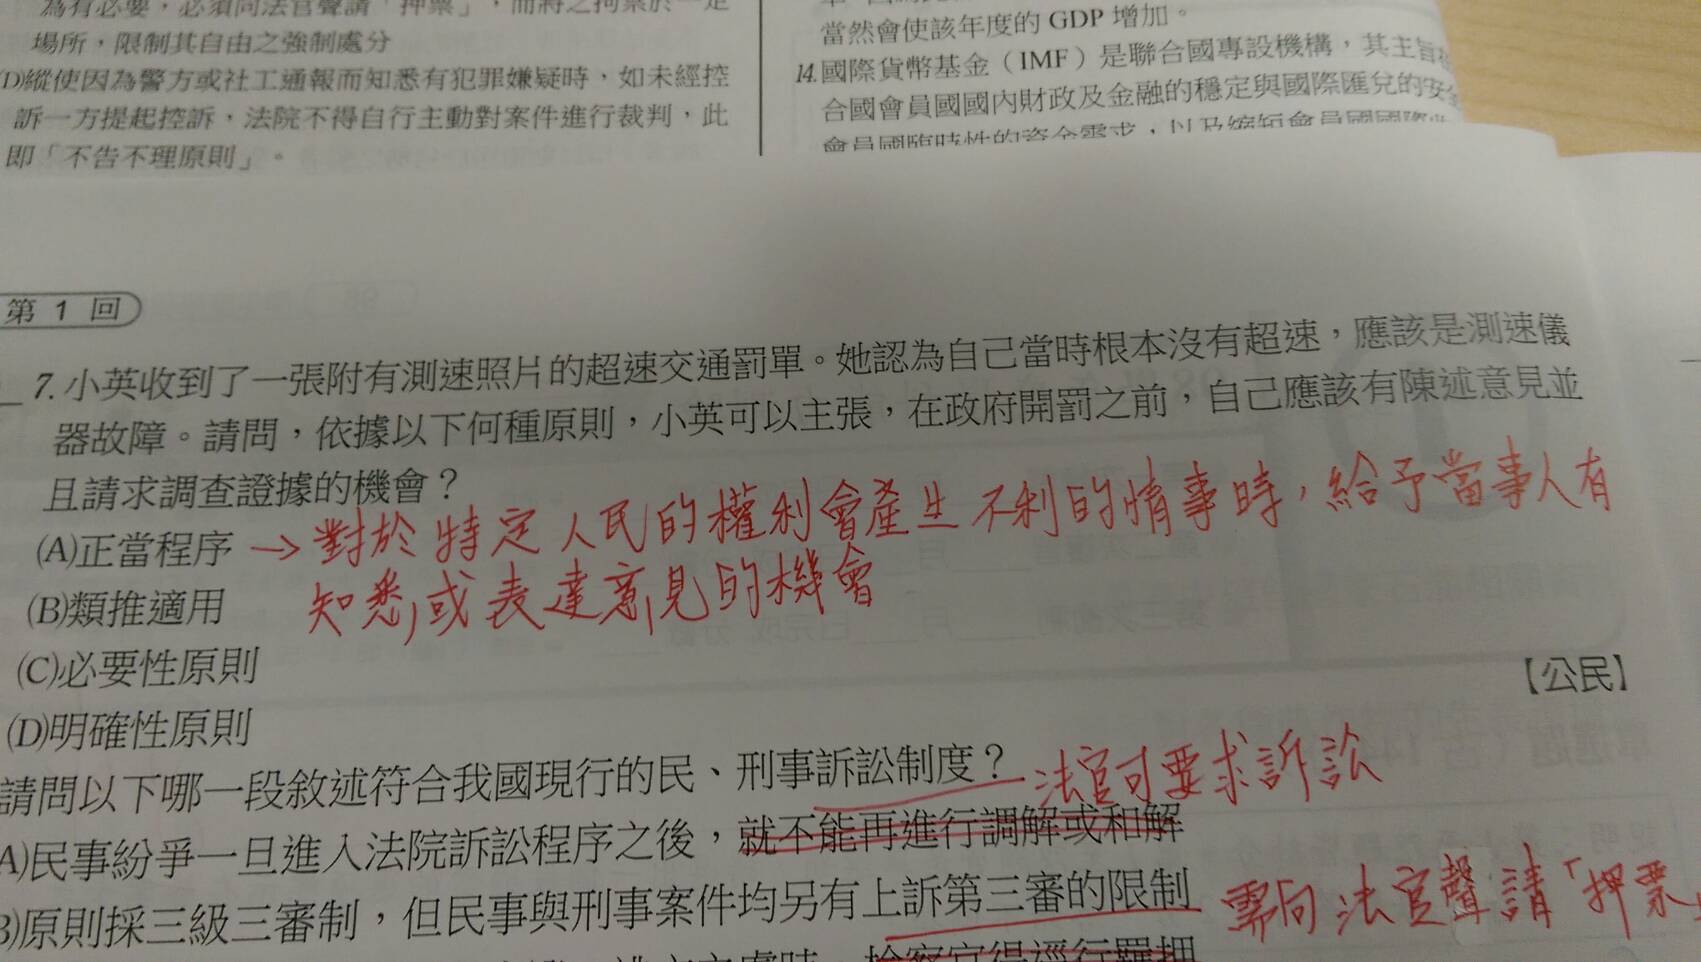 為有必要，必須向法官聲請「押票」，而將之拘禁於一定
場所，限制其自由之強制處分
(D)縱使因為警方或社工通報而知悉有犯罪嫌疑時，如未經控
訴一方提起控訴，法院不得自行主動對案件進行裁判，此
即「不告不理原則」。
當然會使該年度的 GDP 增加。
14.國際貨幣基金（IMF）是聯合國專設機構，其主旨
合國會員國國內財政及金融的穩定與國際匯兌的安
會員國臨時性的資金需求，以及縮短會員國國際
第 1 回
7. 小英收到了一張附有測速照片的超速交通罰單。她認為自己當時根本沒有超速，應該是測速儀
器故障。請問，依據以下何種原則，小英可以主張，在政府開罰之前，自己應該有陳述意見並
且請求調查證據的機會？
(A)正當程序 → 對於特定人民的權利會產生不利的情事時，給予當事人有
知悉，或表達意見的機會
(B)類推適用
(C)必要性原則
(D)明確性原則
【公民】
請問以下哪一段敘述符合我國現行的民、刑事訴訟制度？
法官可要求訴訟
A)民事紛爭一旦進入法院訴訟程序之後，就不能再進行調解或和解
B)原則採三級三審制，但民事與刑事案件均另有上訴第三審的限制
需向法官聲請「押票」
檢察官得逕行羈押